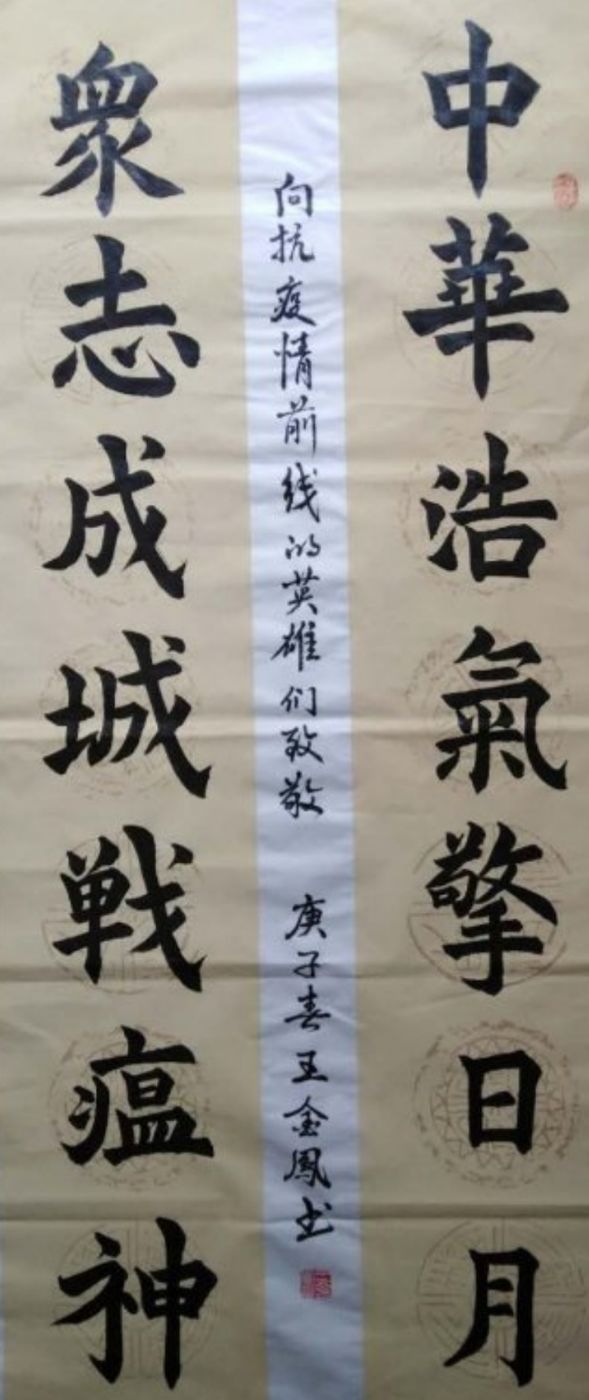 中華浩氣擎日月
衆志成城戦瘟神
向抗疫情前线的英雄们致敬
庚子春王金鳳书